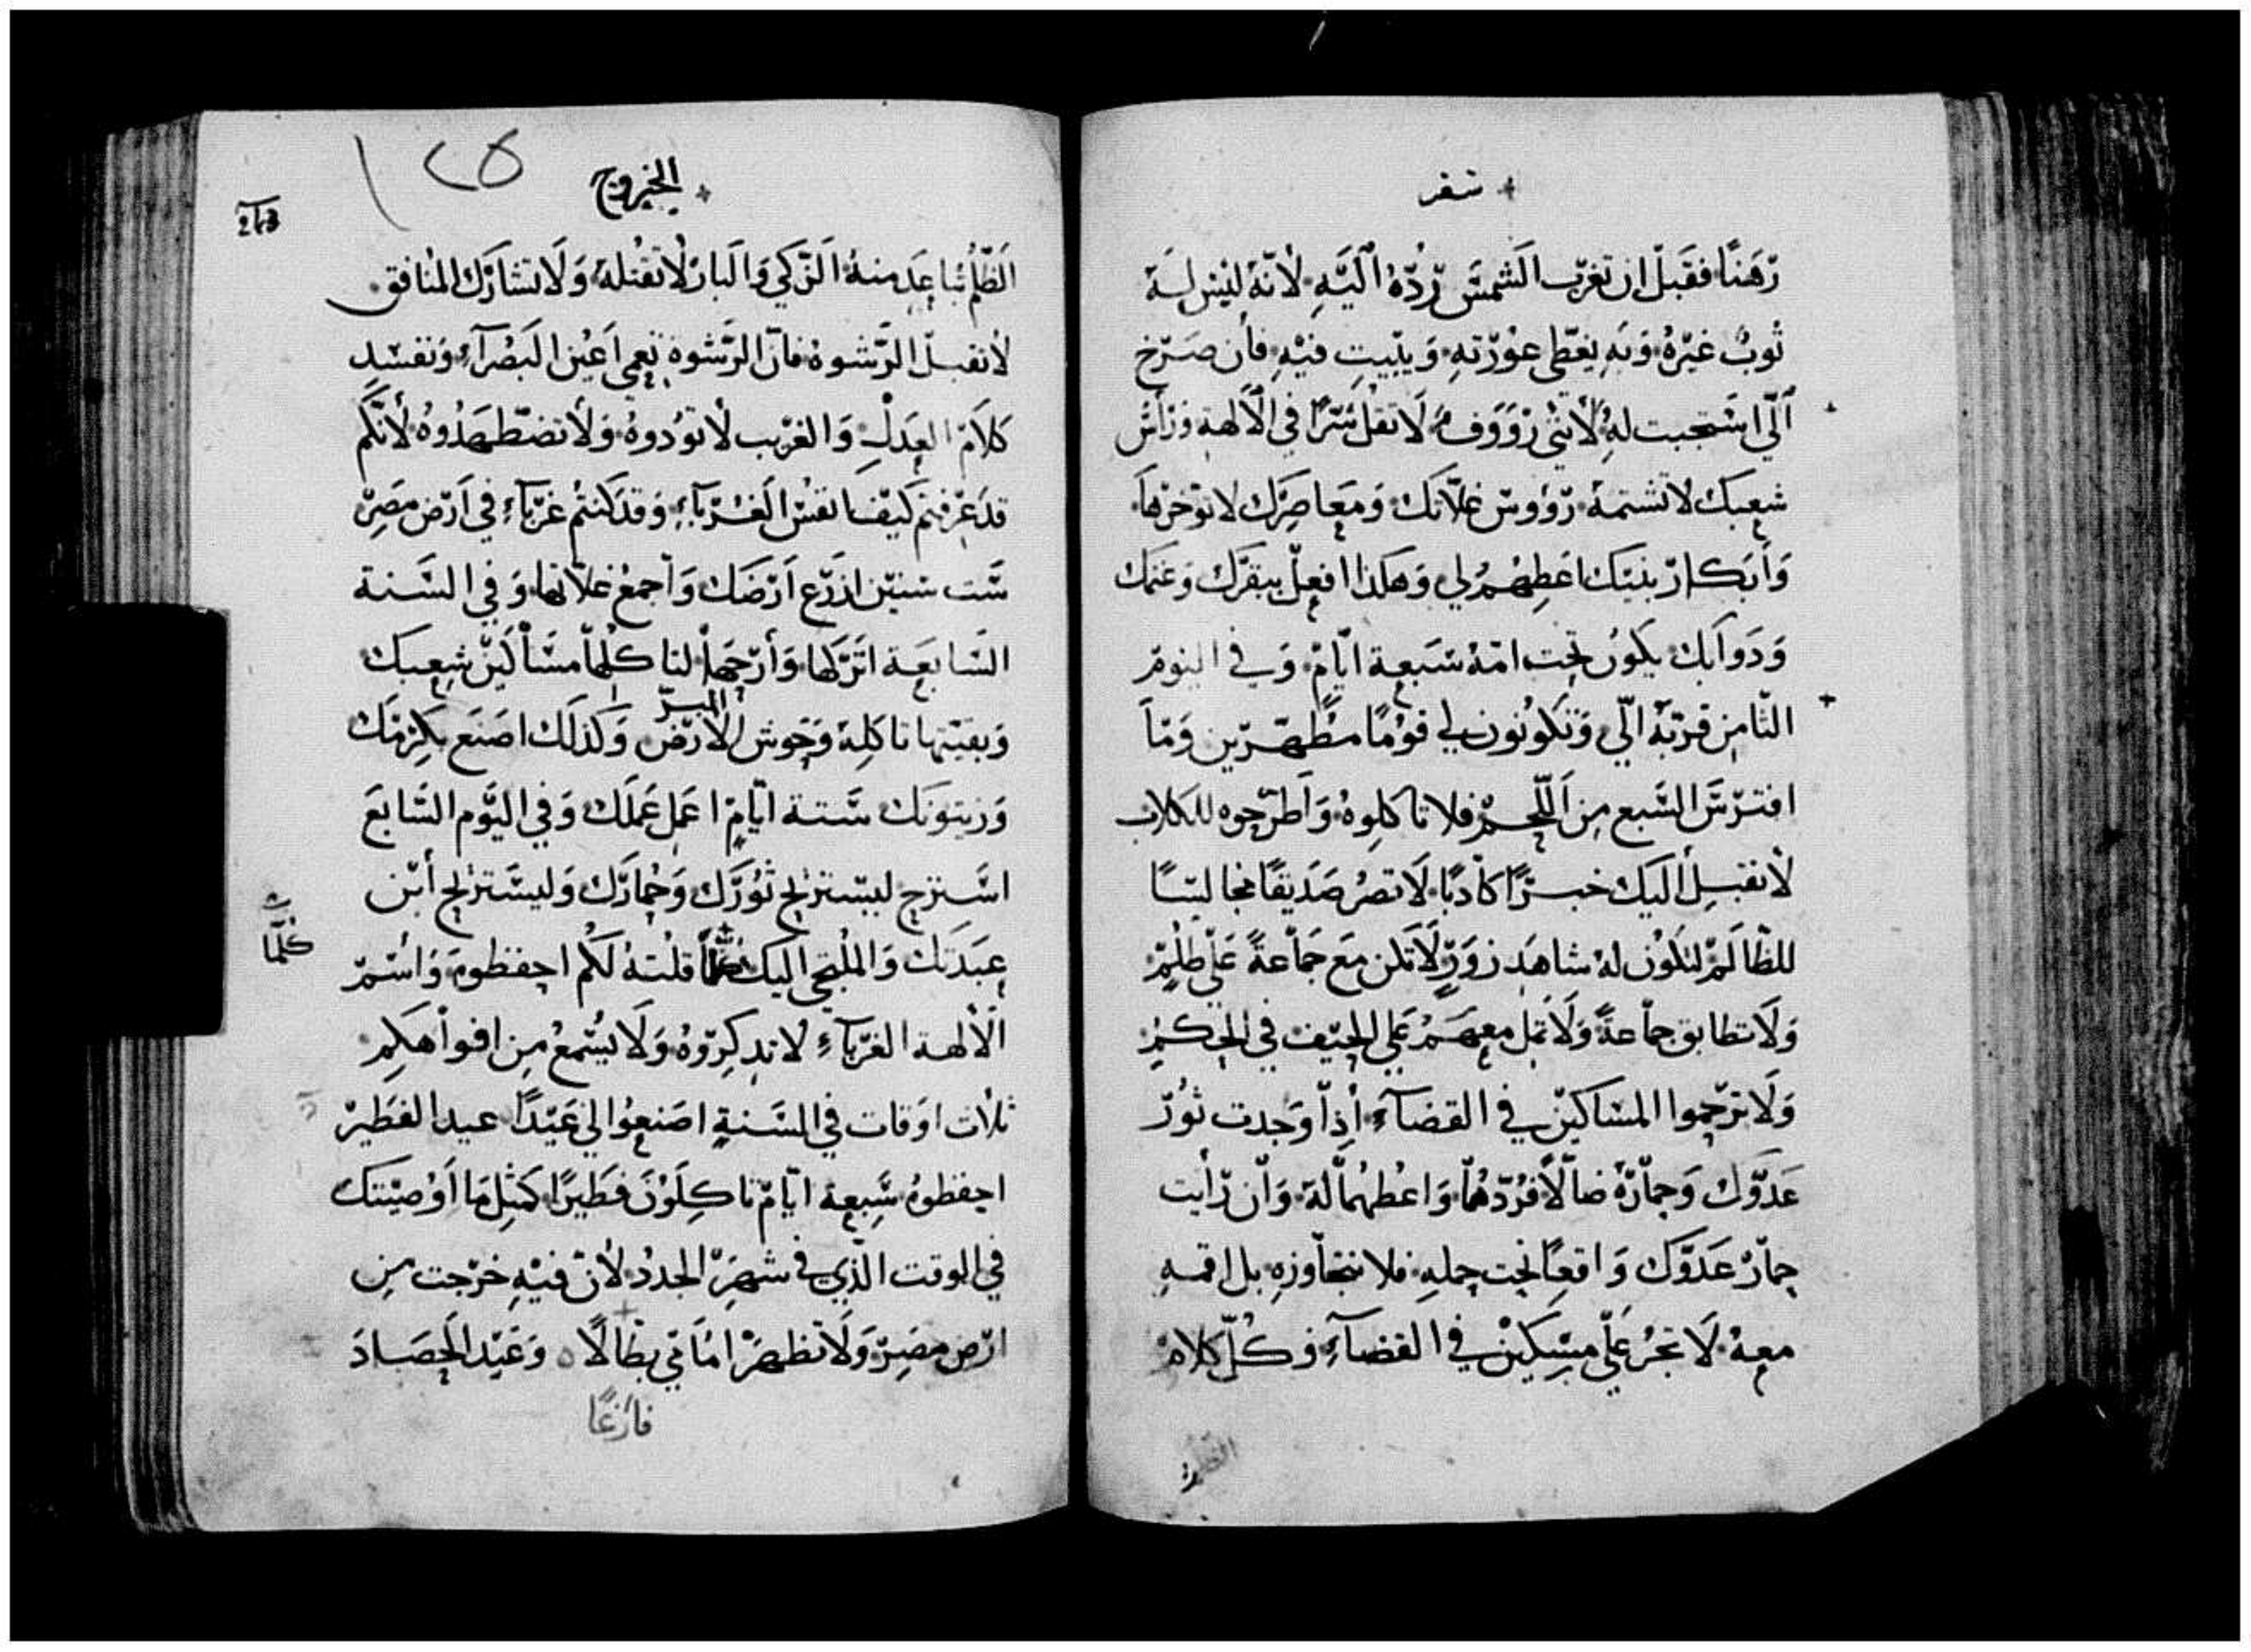 سفر
رهنًا فقبل ان تغرب الشمس ردّه اليه لانه ليس له
ثوب غيره وبه يغطى عورته ويبيت فيه فان صرخ
الّي استجبت له لانني رووف لا تقل شرًا في الالهة ورأس
شعبك لا تشتمه رؤوس غلاتك ومعاصرك لا توخرها
وابكار بنيك اعطهم لي وهكذا افعل ببقرك وغنمك
ودوابك يكون تحت امه سبعة ايام وفي اليوم
الثامن قربه الّي وتكونون لي قومًا مطهرين وما
افترس السبع من اللحم فلا تاكلوه واطرحوه للكلاب
لا تقبل اليك خبرًا كاذبًا لا تصر صديقًا مجالسًا
للظالم لتكون له شاهد زور لا تكن مع جماعة علي ظلم
ولا تطابق جماعة ولا تمل معهم علي الحيف في الحكم
ولا ترحموا المساكين في القضاء اذا وجدت ثور
عدوك وحماره ضالًا فردهما واعطهما له وان رايت
حمار عدوك واقعًا تحت حمله فلا تتجاوزه بل اقمه
معه لا تجر علي مسكين في القضاء وكل كلام
الظلم
الخروج
١٢٥
243
الظلم تباعد منه الزكي والبار لا تقتله ولا تشارك المنافق
لا تقبل الرشوه فان الرشوة تعمي اعين البصراء وتفسد
كلام العدل والغريب لا توذوه ولا تضطهدوه لانكم
قد عرفتم كيف نفس الغرباء وقد كنتم غرباء في ارض مصر
ست سنين ازرع ارضك واجمع غلاتها وفي السنة
السابعة اتركها وارحها لتاكلها مساكين شعبك
وبقيتها تاكله وحوش الارض وكذلك اصنع بكرمك
البر
وزيتونك ستة ايام اعمل عملك وفي اليوم السابع
استرح ليستريح ثورك وحمارك وليستريح ابن
عبدتك والملتجي اليك كلما قلته لكم احفظوه واسم
كلّما
الالهة الغرباء لا تذكروه ولا يسمع من افواهكم
ثلاث اوقات في السنة اصنعوا لي عيدًا عيد الفطير
احفظوه سبعة ايام تاكلون فطيرًا كمثل ما اوصيتك
في الوقت الذي في شهر الجدد لان فيه خرجت من
ارض مصر ولا تظهر امامي بطالًا وعيد الحصاد
فارغًا